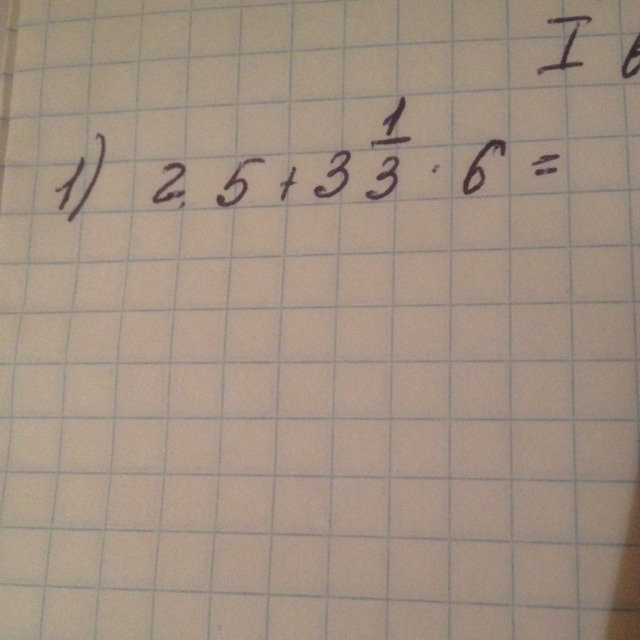 I
1) 2,5 + 3 1/3 · 6 =